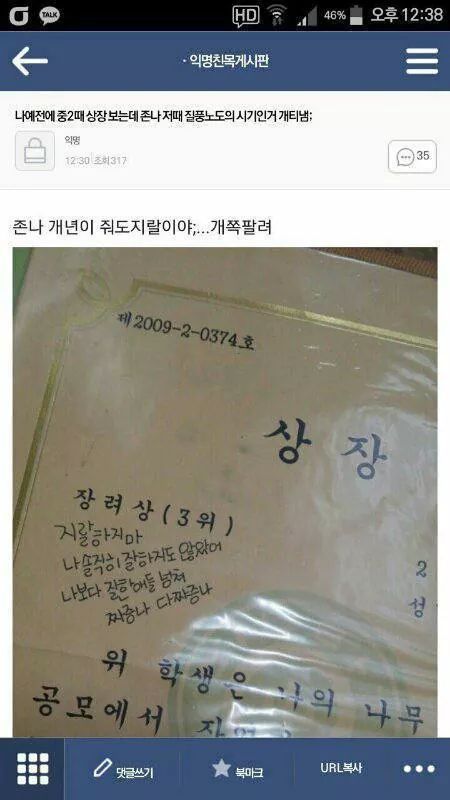 TALK HD 46% 오후 12:38
· 익명친목게시판
나예전에 중2때 상장 보는데 존나 저때 질풍노도의 시기인거 개티냄;
익명
12:30 조회317
35
존나 개년이 줘도지랄이야;...개쪽팔려
제2009-2-0374호
상장
장려상(3위)
지랄하지마
나솔직히 잘하지도 않았어
나보다 잘한애들 넘쳐
짜증나 다짜증나
2
성
위 학생은 나의 나무
공모에서
댓글쓰기
북마크
URL복사